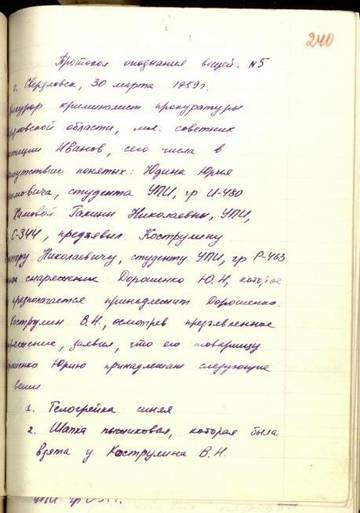 240
Протокол опознания вещей. №5
г. Свердловск, 30 марта 1959 г.
рокурор криминалист прокуратуры
ердловской области, мл. советник
юстиции Иванов, сего числа в
присутствие понятых: Юдина Юрия
студента УПИ, гр И-430
Галины Николаевны, УПИ,
С-344, предъявил Кострулину
Николаевичу, студенту УПИ, гр Р-463
снаряжение Дорошенко Ю.Н, которое
предполагается принадлежит Дорошенко.
Кострулин В.Н., осмотрев предъявленное
снаряжение, заявил, что его товарищу
Дорошенко Юрию принадлежат следующие
вещи
1. Телогрейка синяя
2. Шапка пыжиковая, которая была
взята у Кострулина В.Н.